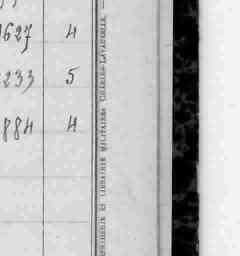 627 4
233 5
884 4
IMPRIMERIE ET LIBRAIRIE MILITAIRES CHARLES-LAVAUZELLE